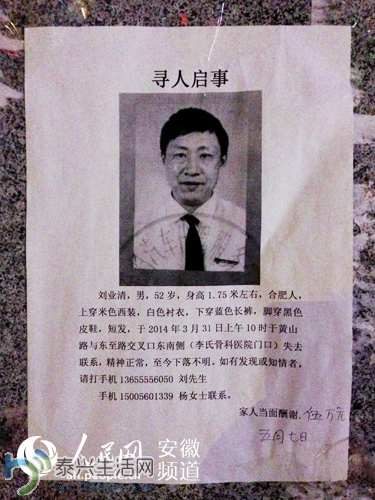 寻人启事
刘业清，男，52岁，身高1.75米左右，合肥人，
上穿米色西装，白色衬衣，下穿蓝色长裤，脚穿黑色
皮鞋，短发，于2014年3月31日上午10时于黄山
路与东至路交叉口东南侧（李氏骨科医院门口）失去
联系，精神正常，至今下落不明。如有发现或知情者，
请打手机13655556050 刘先生
手机15005601339 杨女士联系。
家人当面酬谢.伍万元
五月七日
人民网 安徽
频道
people.cn
泰兴生活网